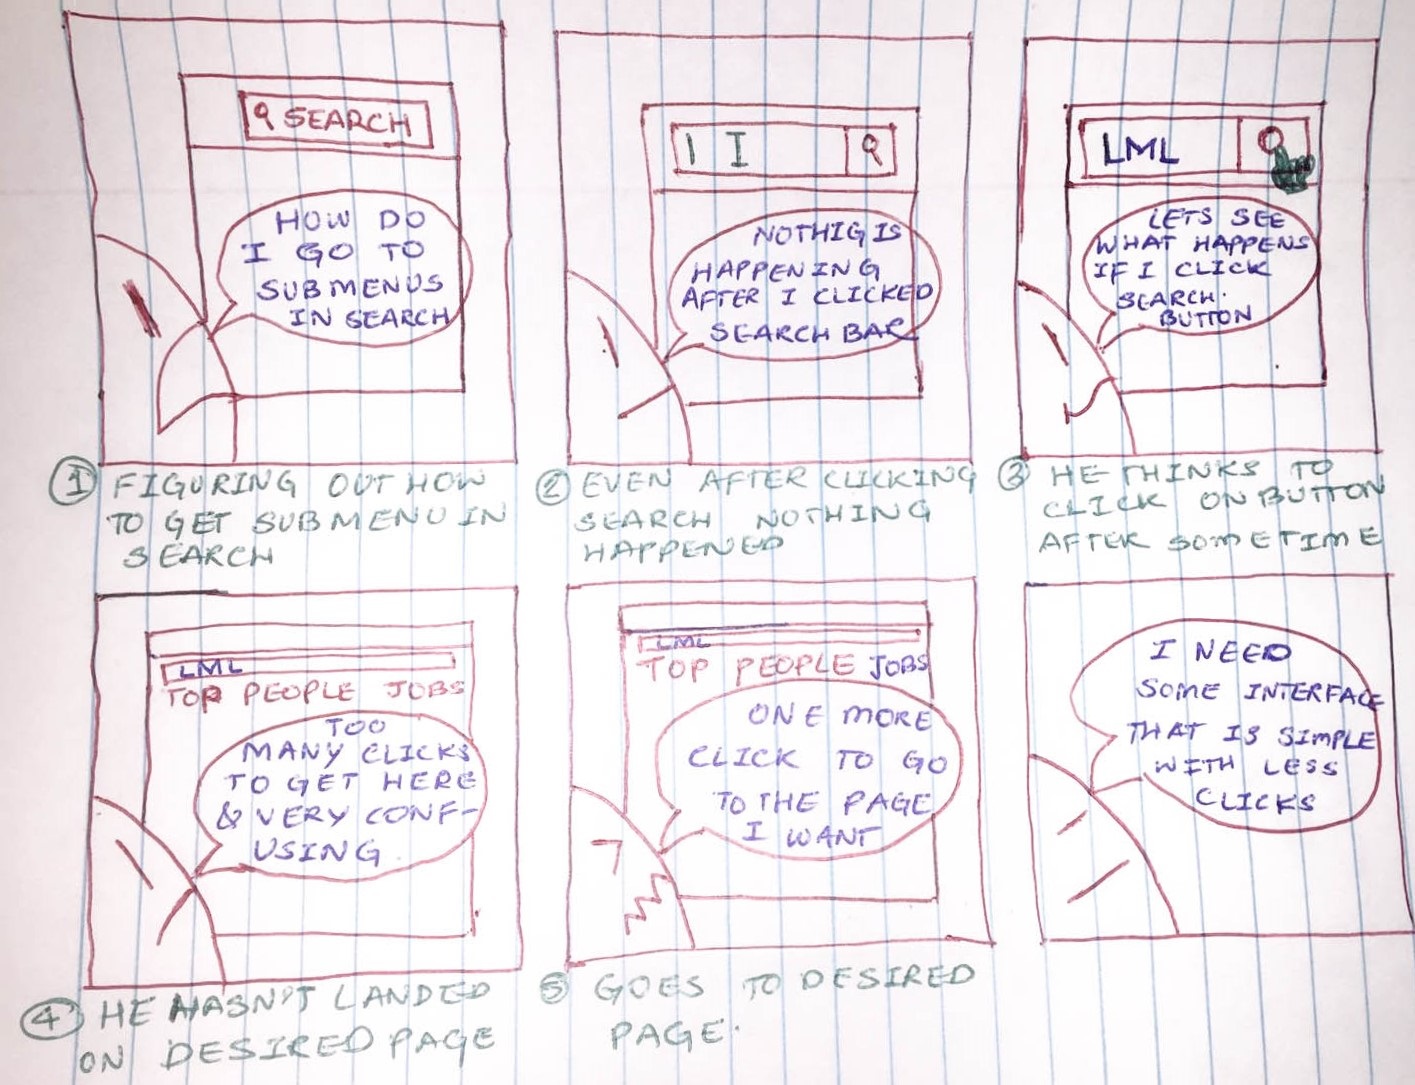 SEARCH
HOW DO
I GO TO
SUBMENUS
IN SEARCH
1 FIGURING OUT HOW
TO GET SUBMENU IN
SEARCH
I
NOTHIG IS
HAPPENING
AFTER I CLICKED
SEARCH BAR
2 EVEN AFTER CLICKING
SEARCH NOTHING
HAPPENED
LML
LETS SEE
WHAT HAPPENS
IF I CLICK
SEARCH.
BUTTON
3 HE THINKS TO
CLICK ON BUTTON
AFTER SOMETIME
LML
TOP PEOPLE JOBS
TOO
MANY CLICKS
TO GET HERE
& VERY CONF-
USING
4 HE HASN'T LANDED
ON DESIRED PAGE
LML
TOP PEOPLE JOBS
ONE MORE
CLICK TO GO
TO THE PAGE
I WANT
5 GOES TO DESIRED
PAGE.
I NEED
SOME INTERFACE
THAT IS SIMPLE
WITH LESS
CLICKS